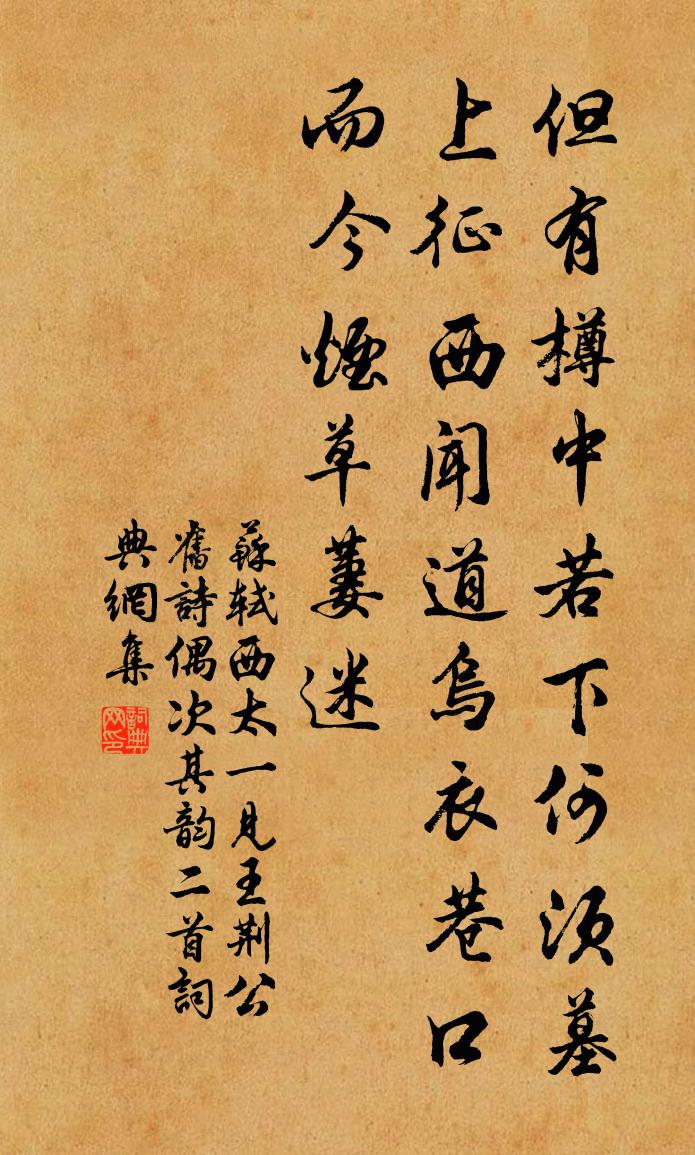 但有樽中若下何須墓
上征西聞道烏衣巷口
而今煙草萋迷
蘇軾西太一見王荊公
舊詩偶次其韵二首詞
典網集
詞典
网印